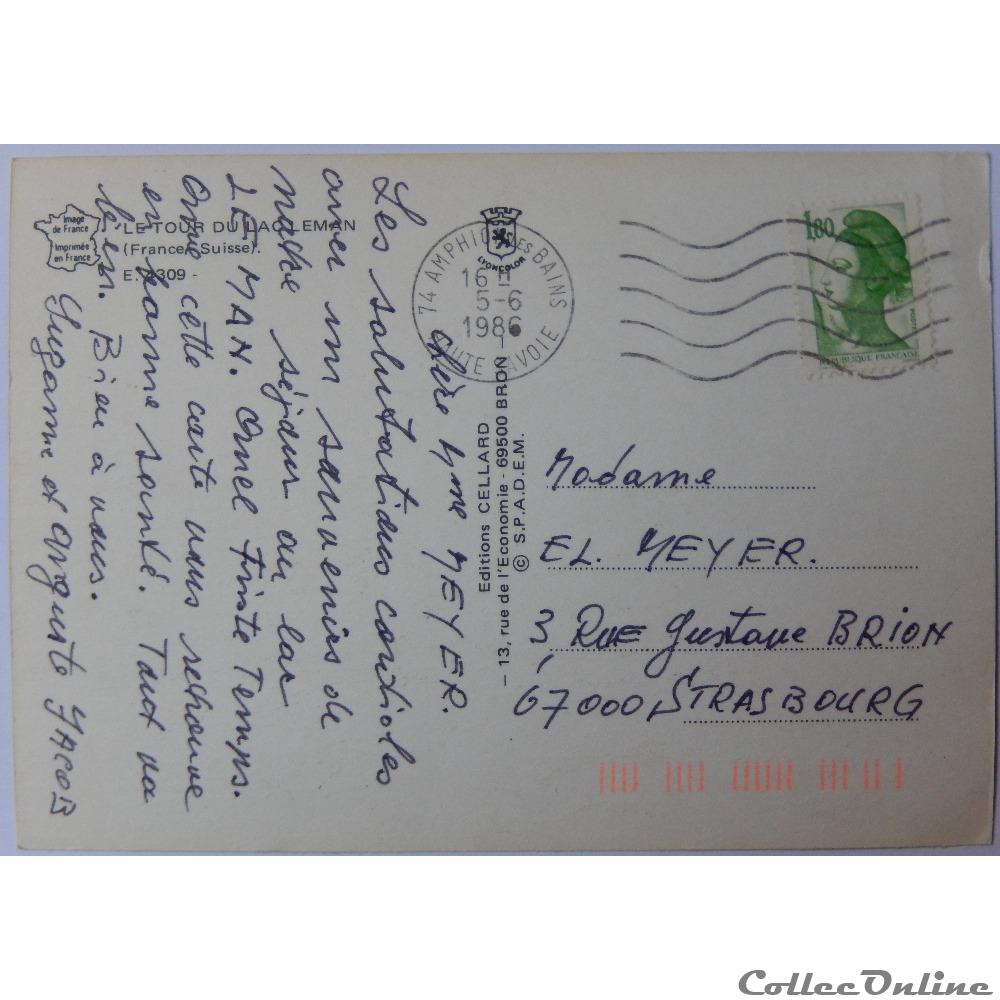 Image
de France
Imprimée
en France
LE TOUR DU LAC LEMAN
(France - Suisse).
E. 4309 -
Chère Mme MEYER.
Les salutations cordiales
avec un souvenirs de
notre séjour au lac
LEMAN. Quel Triste Temps.
Que cette carte vous retrouve
en bonne santé. Tout va
bien. Bien à vous.
et Auguste JACOB
LYONCOLOR
74 AMPHION LES BAINS
16 H
5-6
1986
HAUTE SAVOIE
Editions CELLARD
- 13, rue de l'Economie - 69500 BRON -
© S.P.A.D.E.M.
1,80
REPUBLIQUE FRANCAISE
Madame
EL. MEYER.
3, RUE Gustave BRION
67000 STRASBOURG
CollecOnline